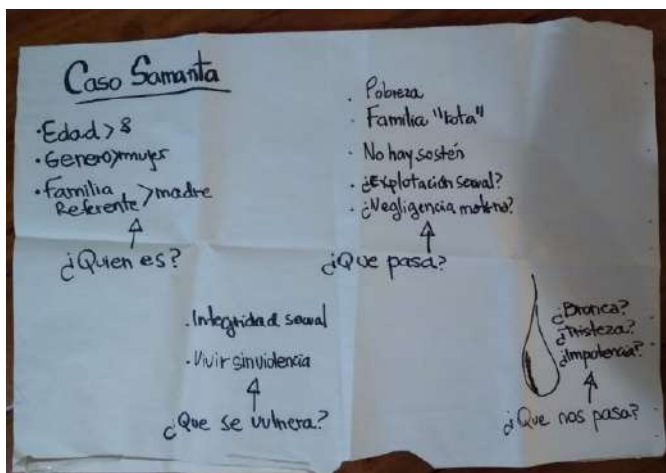 Caso Samanta
·Edad > 8
·Genero>mujer
·Familia
Referente >madre
¿Quien es?
· Pobreza
· Familia "rota"
· No hay sostén
· ¿Explotación sexual?
· ¿Negligencia materna?
¿Que pasa?
·Integridad sexual
·Vivir sin violencia
¿Que se vulnera?
¿Bronca?
¿Tristeza?
¿Impotencia?
¿Que nos pasa?